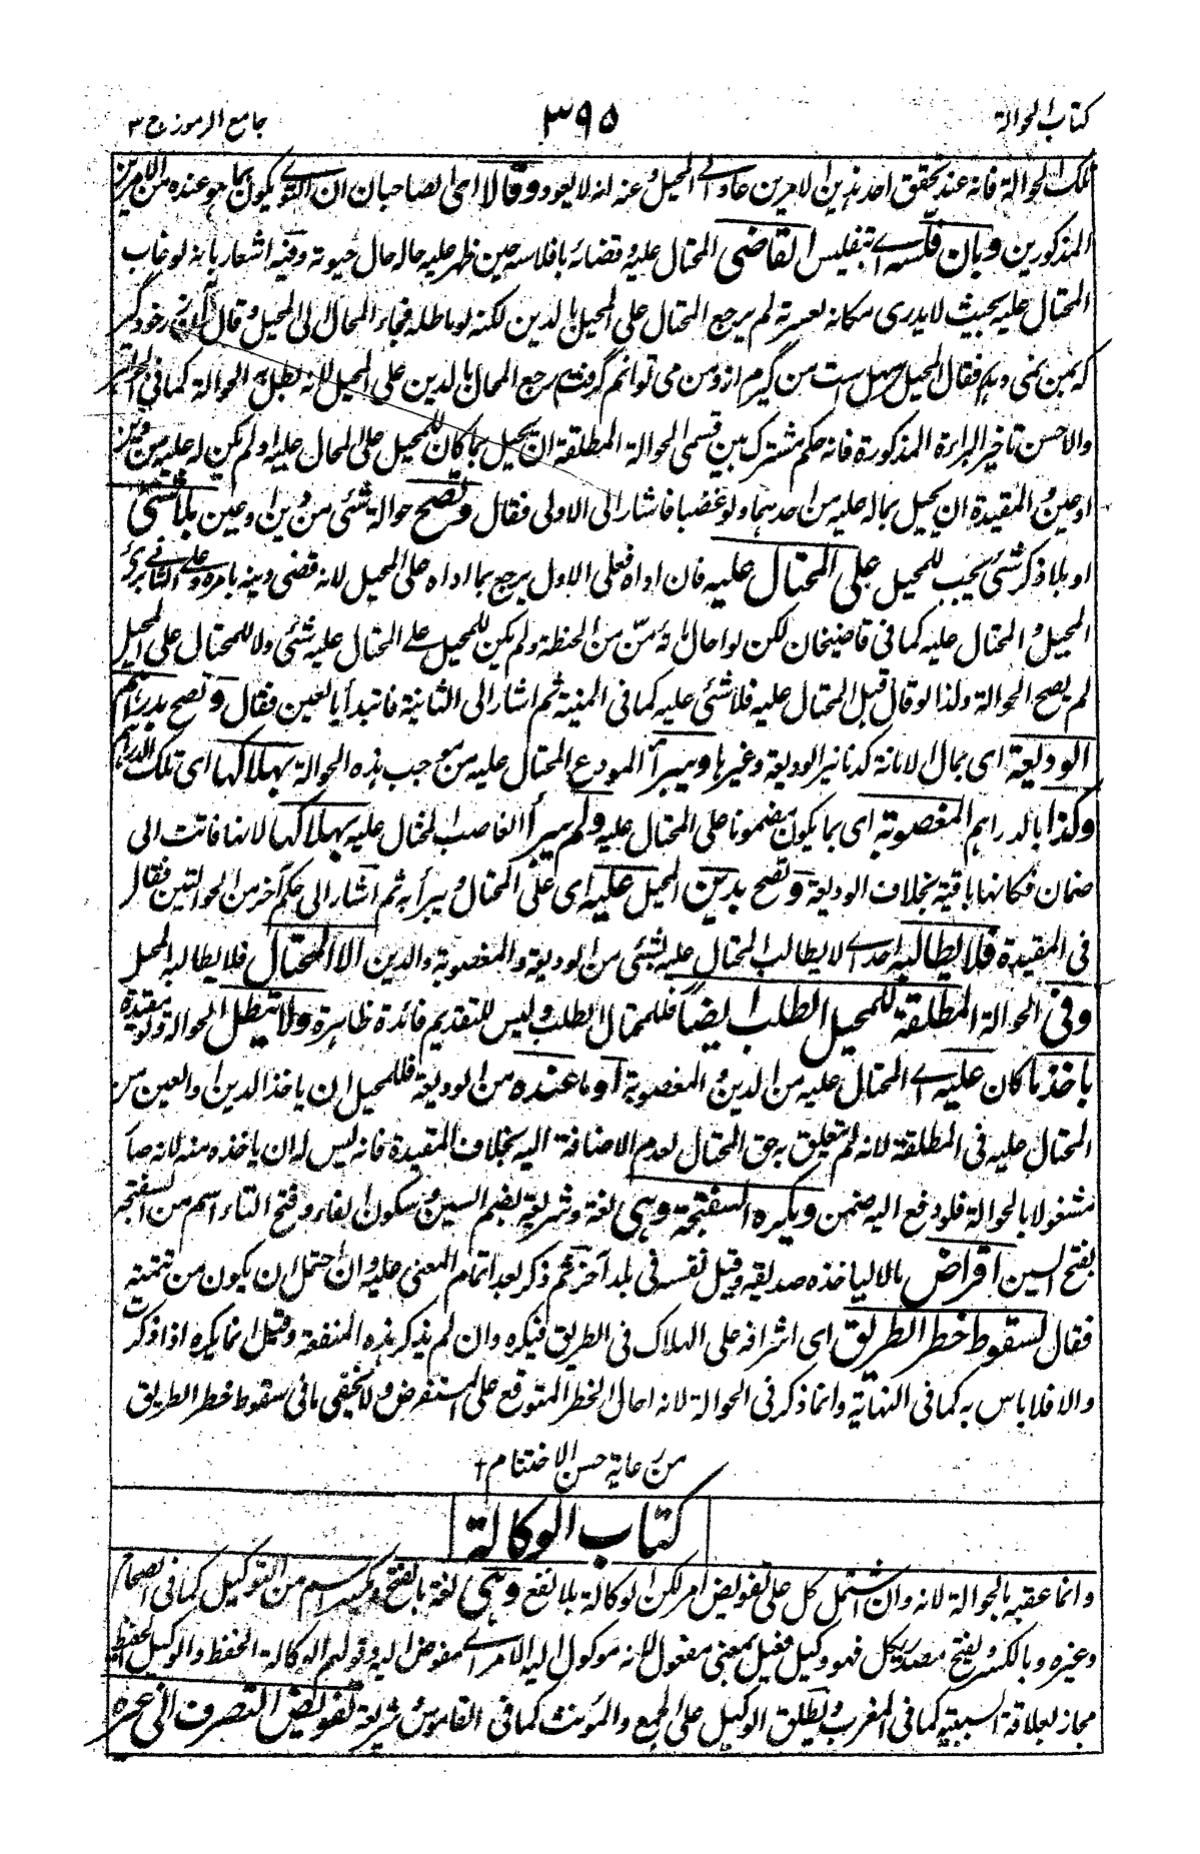 كتاب الحوالة
٣٩٥
جامع الرموز ج ٣
تلك الحوالة فانه عند تحقق احد هذين الامرين عاد الى المحيل وعنه انه لا يعود وقالا اى الصاحبان ان التوى يكون بما هو عنده من الامرين
المذكورين وبان فلسه اى تفليس القاضى المحتال عليه وقضائه بافلاسه حين ظهر عليه حاله حال حيوته وفيه اشعار بانه لو غاب
المحتال عليه بحيث لا يدرى مكانه لعسرته لم يرجع المحتال على المحيل بالدين لكنه لو ماطله فجاء المحال الى المحيل وقال
كه بمن نمى دهد فقال المحيل سهل است من گيرم ازو من مى توانم گرفت يرجع المحال بالدين على المحيل لانه تبطل به الحوالة كما فى
والاحسن تاخير البراءة المذكورة فانه حكم مشترك بين قسمى الحوالة المطلقة ان يحيل بما كان للمحيل على المحال عليه او لم يكن له عليه من دين
او عين والمقيدة ان يحيل بماله عليه من احدهما ولو غصبا فاشار الى الاولى فقال وتصح حوالة شئى من دين او عين بلا شئى
او بلا ذكر شئى يجب للمحيل على المحتال عليه فان اداه فعلى الاول يرجع بما اداه على المحيل لانه قضى دينه بامره وعلى الثانى برئ
المحيل والمحتال عليه كما فى قاضيخان لكن لو احال مائة منّ من الحنطة ولم يكن للمحيل على المحتال عليه شئى ولا للمحتال على المحيل
لم يصح الحوالة ولذا لو قال قبل المحتال عليه فلا شئى عليه كما فى المنية ثم اشار الى الثانية فابتدأ بالعين فقال وتصح بدراهم
الوديعة اى بمال الامانة كدنانير الوديعة وغيرها ويبرأ المودع المحتال عليه من موجب هذه الحوالة بهلاكها اى تلك الدراهم
وكذا بالدراهم المغصوبة اى بما يكون مضمونا على المحتال عليه ولم يبرأ الغاصب المحتال عليه بهلاكها لانها فاتت الى
ضمان فكانها باقية بخلاف الوديعة وتصح بدين المحيل عليه اى على المحتال ويبرأ به ثم اشار الى حكم آخر من الحوالتين فقال
فى المقيدة فلا يطالبه احد اى لا يطالب المحتال عليه بشئى من الوديعة والمغصوبة والدين الا المحتال فلا يطالبه المحيل
وفى الحوالة المطلقة للمحيل الطلب ايضا فللمحتال الطلب وليس للتقديم فائدة ظاهرة ولا تبطل الحوالة ولو مقيدة
باخذ ما كان عليه اى المحتال عليه من الدين والمغصوبة او ما عنده من الوديعة فللمحيل ان ياخذ الدين والعين من
المحتال عليه فى المطلقة لانه لم يتعلق به حق المحتال لعدم الاضافة اليه بخلاف المقيدة فانه ليس له ان ياخذه منه لانه صار
مشغولا بالحوالة فلو دفع اليه ضمن ويكره السفتجة وهى لغة وشريعة بضم السين وسكون الفاء وفتح التاء اسم من السفتجة
بفتح السين اقراض مالا لياخذه صديقه وقيل نفسه فى بلد آخر ثم ذكر بعد اتمام المعنى عليه وان احتمل ان يكون من تتمته
فقال لسقوط خطر الطريق اى اشرافه على الهلاك فى الطريق فيكره وان لم يذكر هذه المنفعة وقيل انما يكره اذا ذكرت
والا فلا باس به كما فى النهاية وانما ذكر فى الحوالة لانه احال الخطر المتوقع على المستقرض ولا يخفى ما فى سقوط خطر الطريق
من رعاية حسن الاختتام
كتاب الوكالة
وانما عقبه بالحوالة لانه وان اشتمل كل على تفويض امر لكن الوكالة بلا نفع وهى لغة بالفتح والكسر اسم من التوكيل كما فى الصحاح
وغيره وبالكسر ويفتح مصدر وكل فهو وكيل فعيل بمعنى مفعول لانه موكول اليه الامر اى مفوض اليه وقولهم الوكالة الحفظ والوكيل الحفيظ
مجاز لعلاقة السببية كما فى المغرب ويطلق الوكيل على الجمع والمؤنث كما فى القاموس وشريعة تفويض التصرف الى غيره